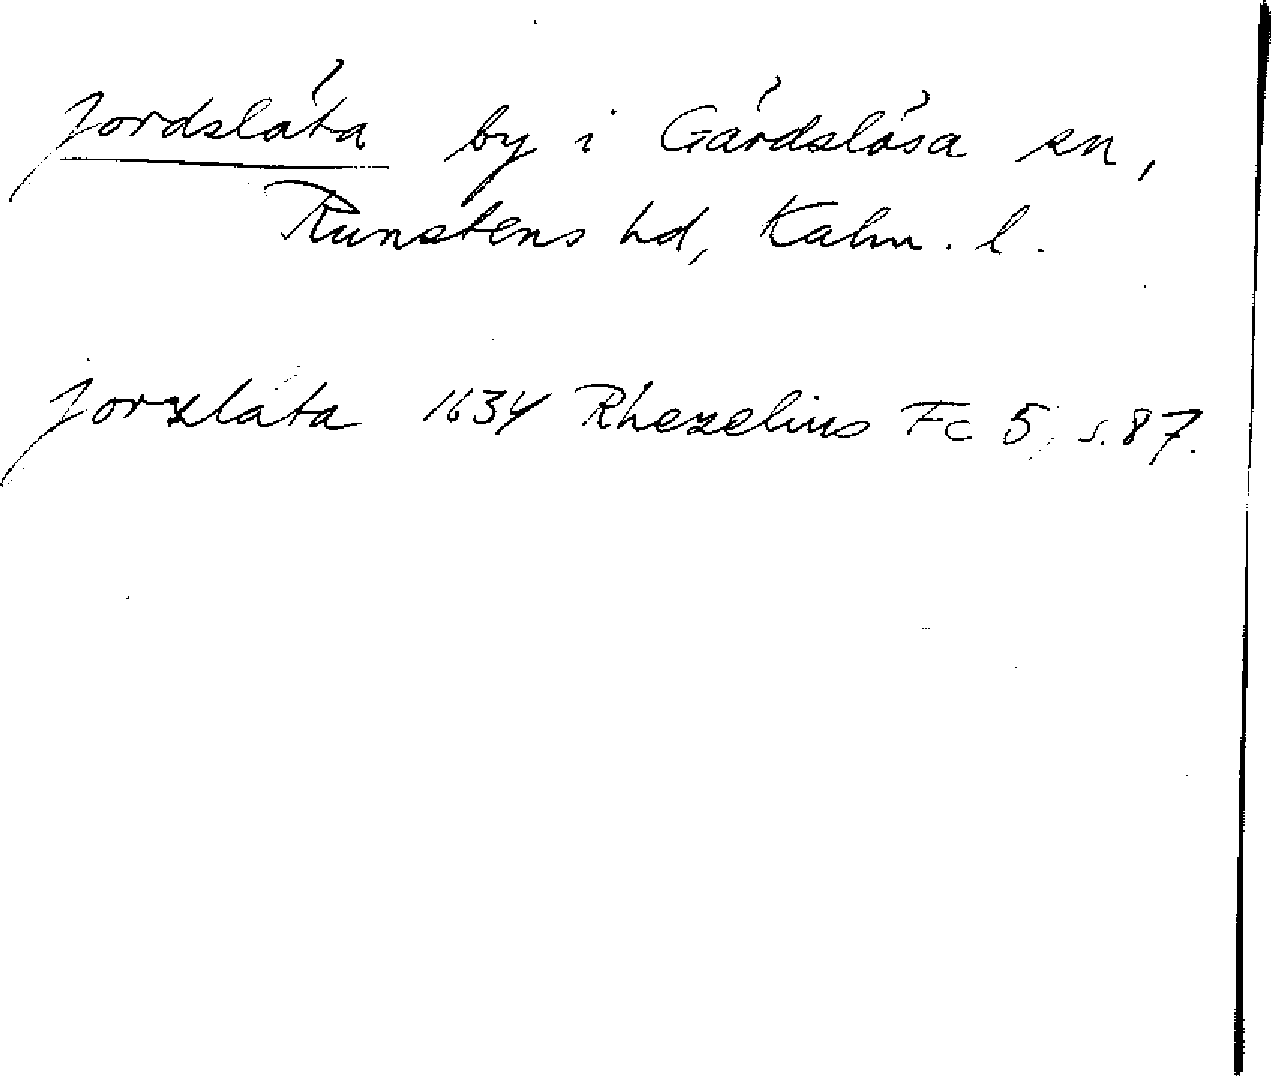 Jordslåta by i Gårdslösa sn,
Runstens hd, Kalm. l.
Jorxlåta 1634 Rhezelius Fc 5, s. 87.